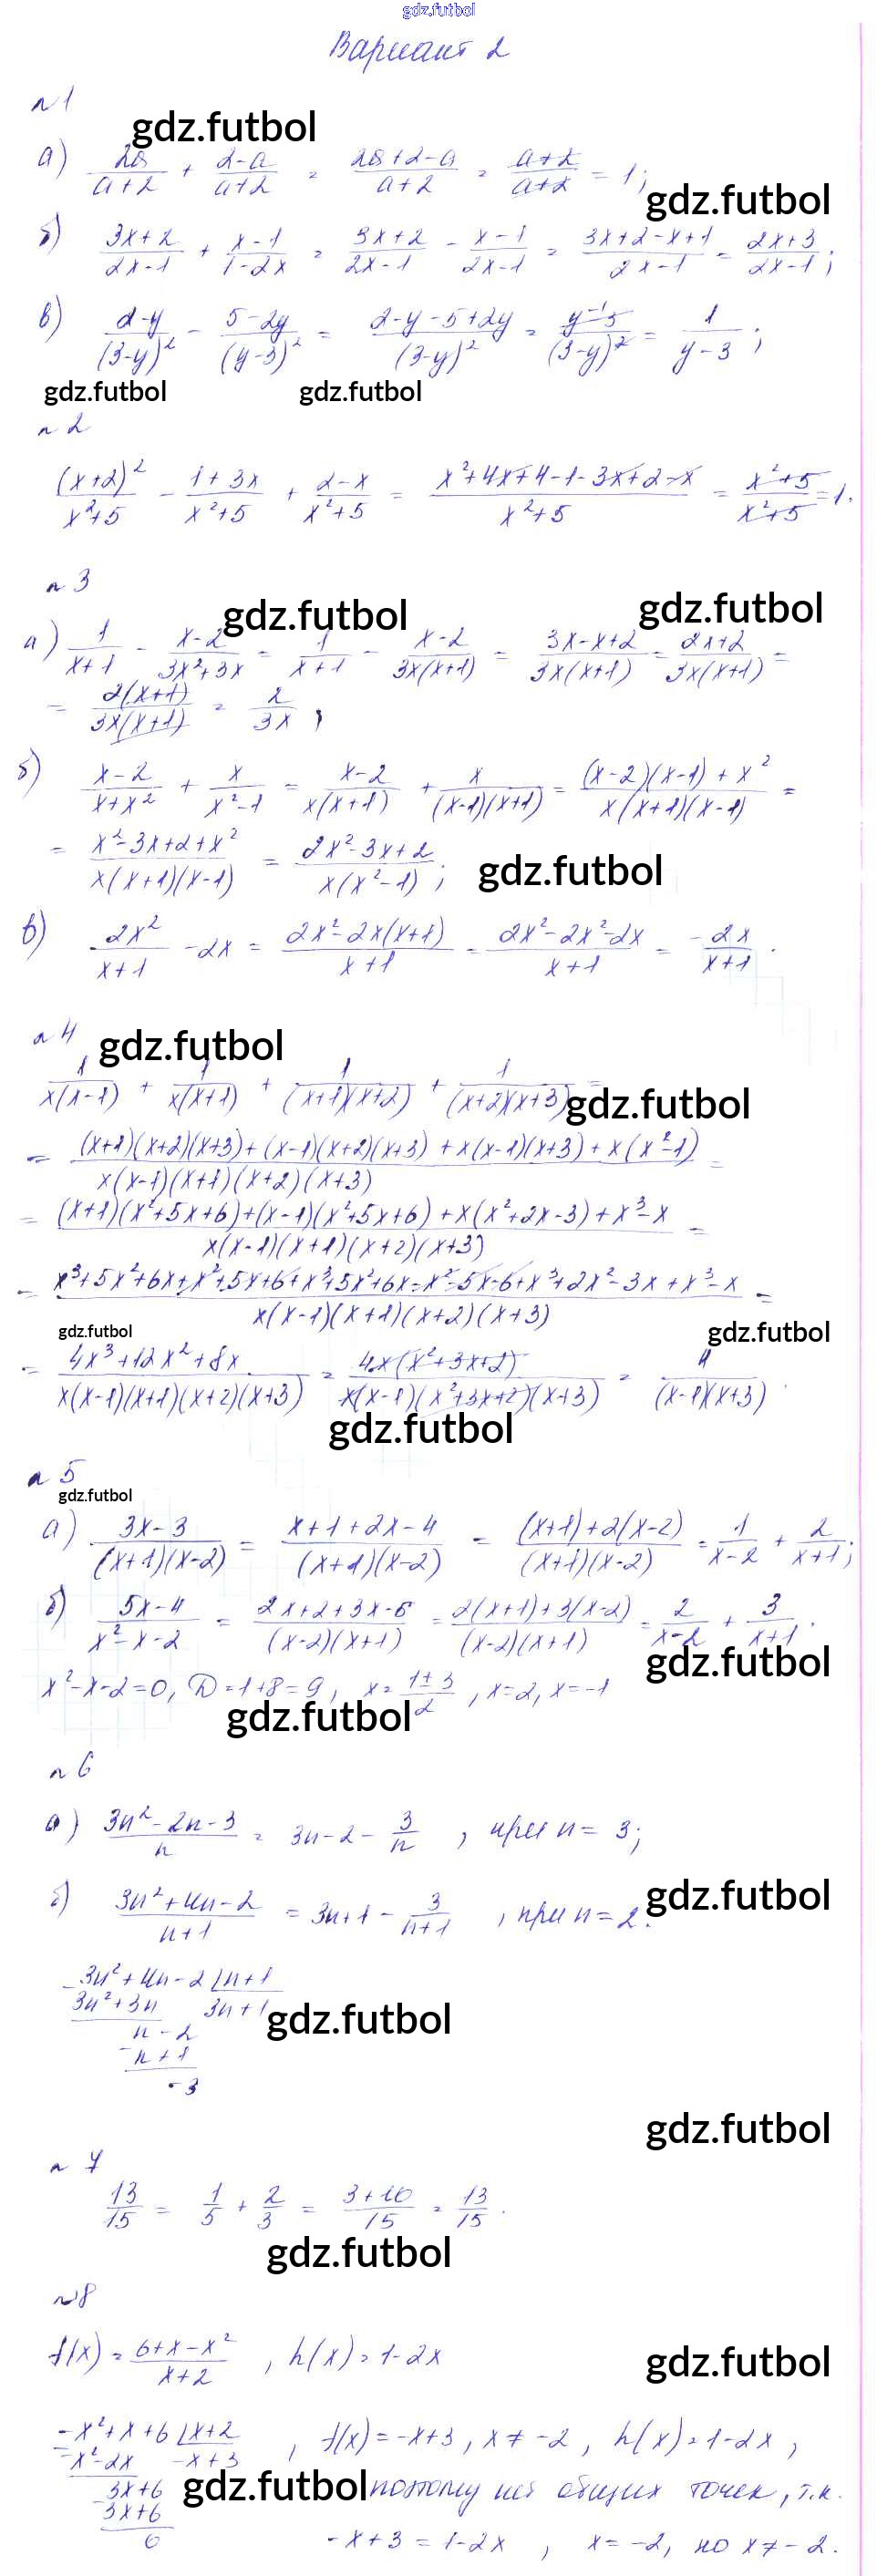 gdz.futbol
Вариант 2
n 1
gdz.futbol
а) 2a/(a+2) + (2-a)/(a+2) = (2a+2-a)/(a+2) = (a+2)/(a+2) = 1;
gdz.futbol
б) (3x+2)/(2x-1) + (x-1)/(1-2x) = (3x+2)/(2x-1) - (x-1)/(2x-1) = (3x+2-x+1)/(2x-1) = (2x+3)/(2x-1);
в) (2-y)/(3-y)² - (5-2y)/(y-3)² = (2-y-5+2y)/(3-y)² = = 1/(y-3);
gdz.futbol gdz.futbol
n 2
(x+2)²/(x²+5) - (1+3x)/(x²+5) + (2-x)/(x²+5) = (x²+4x+4-1-3x+2-x)/(x²+5) = (x²+5)/(x²+5) = 1.
n 3
gdz.futbol gdz.futbol
а) 1/(x+1) - (x-2)/(3x²+3x) = 1/(x+1) - (x-2)/(3x(x+1)) = (3x-x+2)/(3x(x+1)) = (2x+2)/(3x(x+1)) =
= 2(x+1)/(3x(x+1)) = 2/(3x);
б) (x-2)/(x+x²) + x/(x²-1) = (x-2)/(x(x+1)) + x/((x-1)(x+1)) = ((x-2)(x-1)+x²)/(x(x+1)(x-1)) =
= (x²-3x+2+x²)/(x(x+1)(x-1)) = (2x²-3x+2)/(x(x²-1));
gdz.futbol
в) 2x²/(x+1) - 2x = (2x²-2x(x+1))/(x+1) = (2x²-2x²-2x)/(x+1) = -2x/(x+1).
n 4
gdz.futbol
1/(x(x-1)) + 1/(x(x+1)) + 1/((x+1)(x+2)) + 1/((x+2)(x+3)) =
gdz.futbol
= ((x+1)(x+2)(x+3)+(x-1)(x+2)(x+3)+x(x-1)(x+3)+x(x²-1))/(x(x-1)(x+1)(x+2)(x+3)) =
= ((x+1)(x²+5x+6)+(x-1)(x²+5x+6)+x(x²+2x-3)+x³-x)/(x(x-1)(x+1)(x+2)(x+3)) =
= (x³+5x²+6x+x²+5x+6+x³+5x²+6x-x²-5x-6+x³+2x²-3x+x³-x)/(x(x-1)(x+1)(x+2)(x+3)) =
gdz.futbol gdz.futbol
= (4x³+12x²+8x)/(x(x-1)(x+1)(x+2)(x+3)) = 4x(x²+3x+2)/(x(x-1)(x²+3x+2)(x+3)) = 4/((x-1)(x+3)).
gdz.futbol
n 5
gdz.futbol
а) (3x-3)/((x+1)(x-2)) = (x+1+2x-4)/((x+1)(x-2)) = ((x+1)+2(x-2))/((x+1)(x-2)) = 1/(x-2) + 2/(x+1);
б) (5x-4)/(x²-x-2) = (2x+2+3x-6)/((x-2)(x+1)) = (2(x+1)+3(x-2))/((x-2)(x+1)) = 2/(x-2) + 3/(x+1).
gdz.futbol
x²-x-2=0, D=1+8=9, x=(1±3)/2, x=2, x=-1
gdz.futbol
n 6
а) (3n²-2n-3)/n = 3n-2-3/n, при n=3;
б) (3n²+4n-2)/(n+1) = 3n+1-3/(n+1), при n=2.
gdz.futbol
-3n²+4n-2 | n+1
3n²+3n 3n+1
gdz.futbol
n-2
-n+1
-3
gdz.futbol
n 7
13/15 = 1/5 + 2/3 = (3+10)/15 = 13/15.
gdz.futbol
n8
f(x) = (6+x-x²)/(x+2), h(x)=1-2x
gdz.futbol
-x²+x+6 | x+2, f(x)=-x+3, x≠-2, h(x)=1-2x,
-x²-2x -x+3
3x+6 gdz.futbol поэтому нет общих точек, т.к.
3x+6
0 -x+3=1-2x, x=-2, но x≠-2.